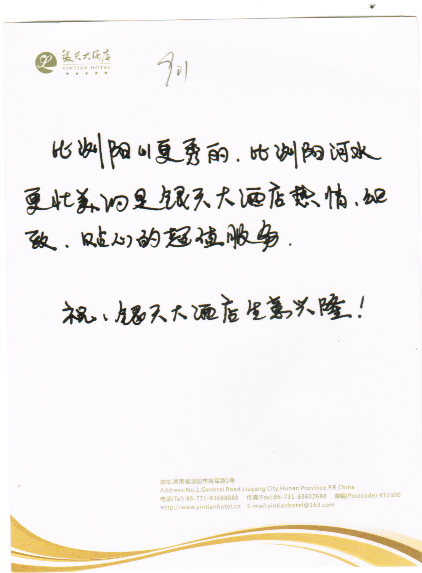 银天大酒店
YINTIAN HOTEL
901
比浏阳山更秀的,比浏阳河水
更壮美的是银天大酒店热情、细
致、贴心的超值服务.
祝:银天大酒店生意兴隆!
地址:湖南省浏阳市将军路1号
Address:No.1,General Road,Liuyang City,Hunan Province,P.R.China
电话(Tel):86-731-83688888 传真(Fax):86-731-83602688 邮编(Postcode):410300
Http://www.yintianhotel.cn E-mail:yintianhotel@163.com